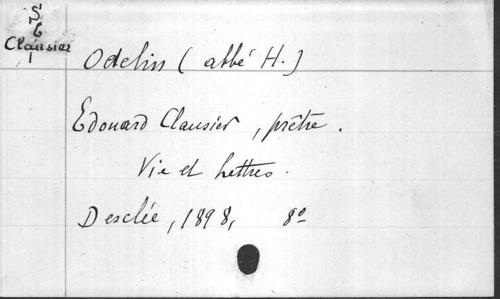 S
6
Clausier
1
Odelin (abbé H.)
Edouard Clausier, prêtre.
Vie et Lettres.
Desclée, 1898, 8º